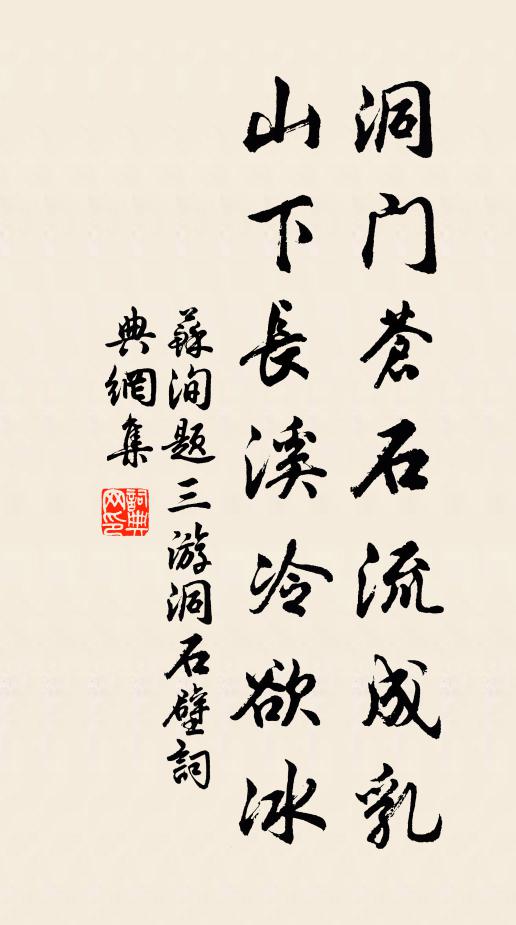 洞门苍石流成乳
山下長溪冷欲冰
蘇洵题三游洞石壁詞
典網集
詞典网印